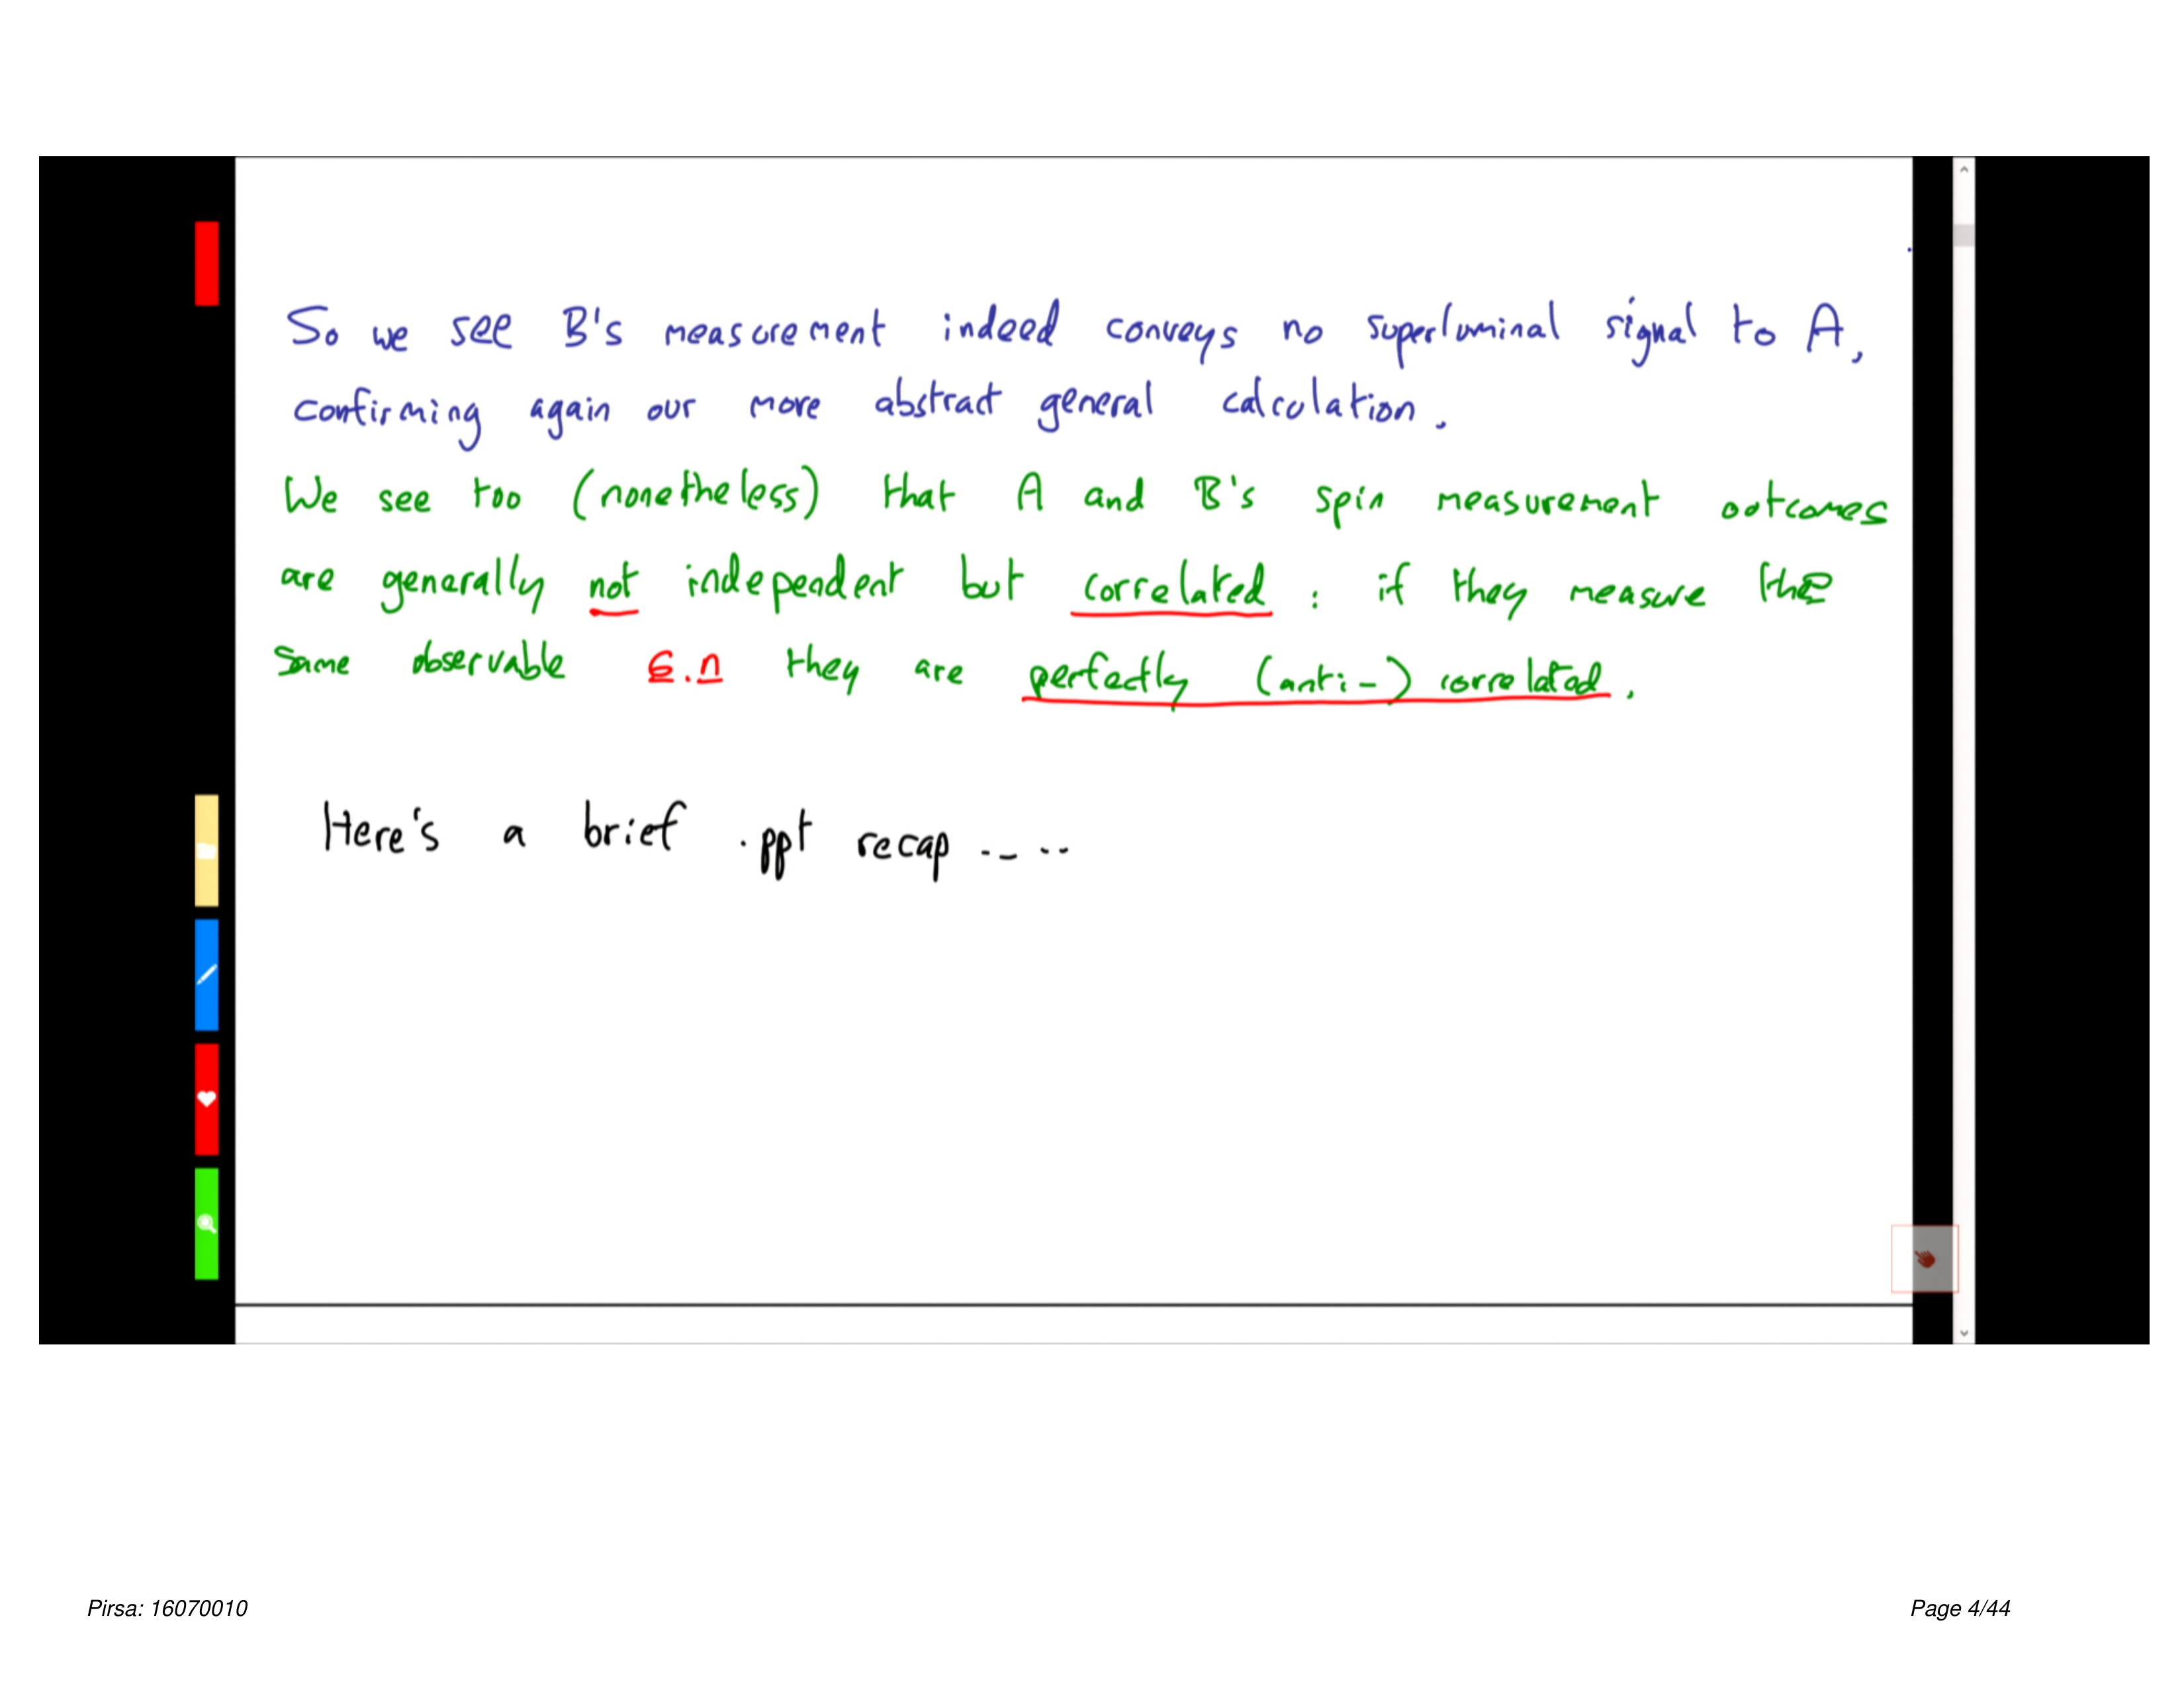 So we see B's measurement indeed conveys no superluminal signal to A,
confirming again our more abstract general calculation.
We see too (nonetheless) that A and B's spin measurement outcomes
are generally not independent but correlated : if they measure the
same observable σ.n they are perfectly (anti-) correlated.
Here's a brief .ppt recap ....
Pirsa: 16070010
Page 4/44